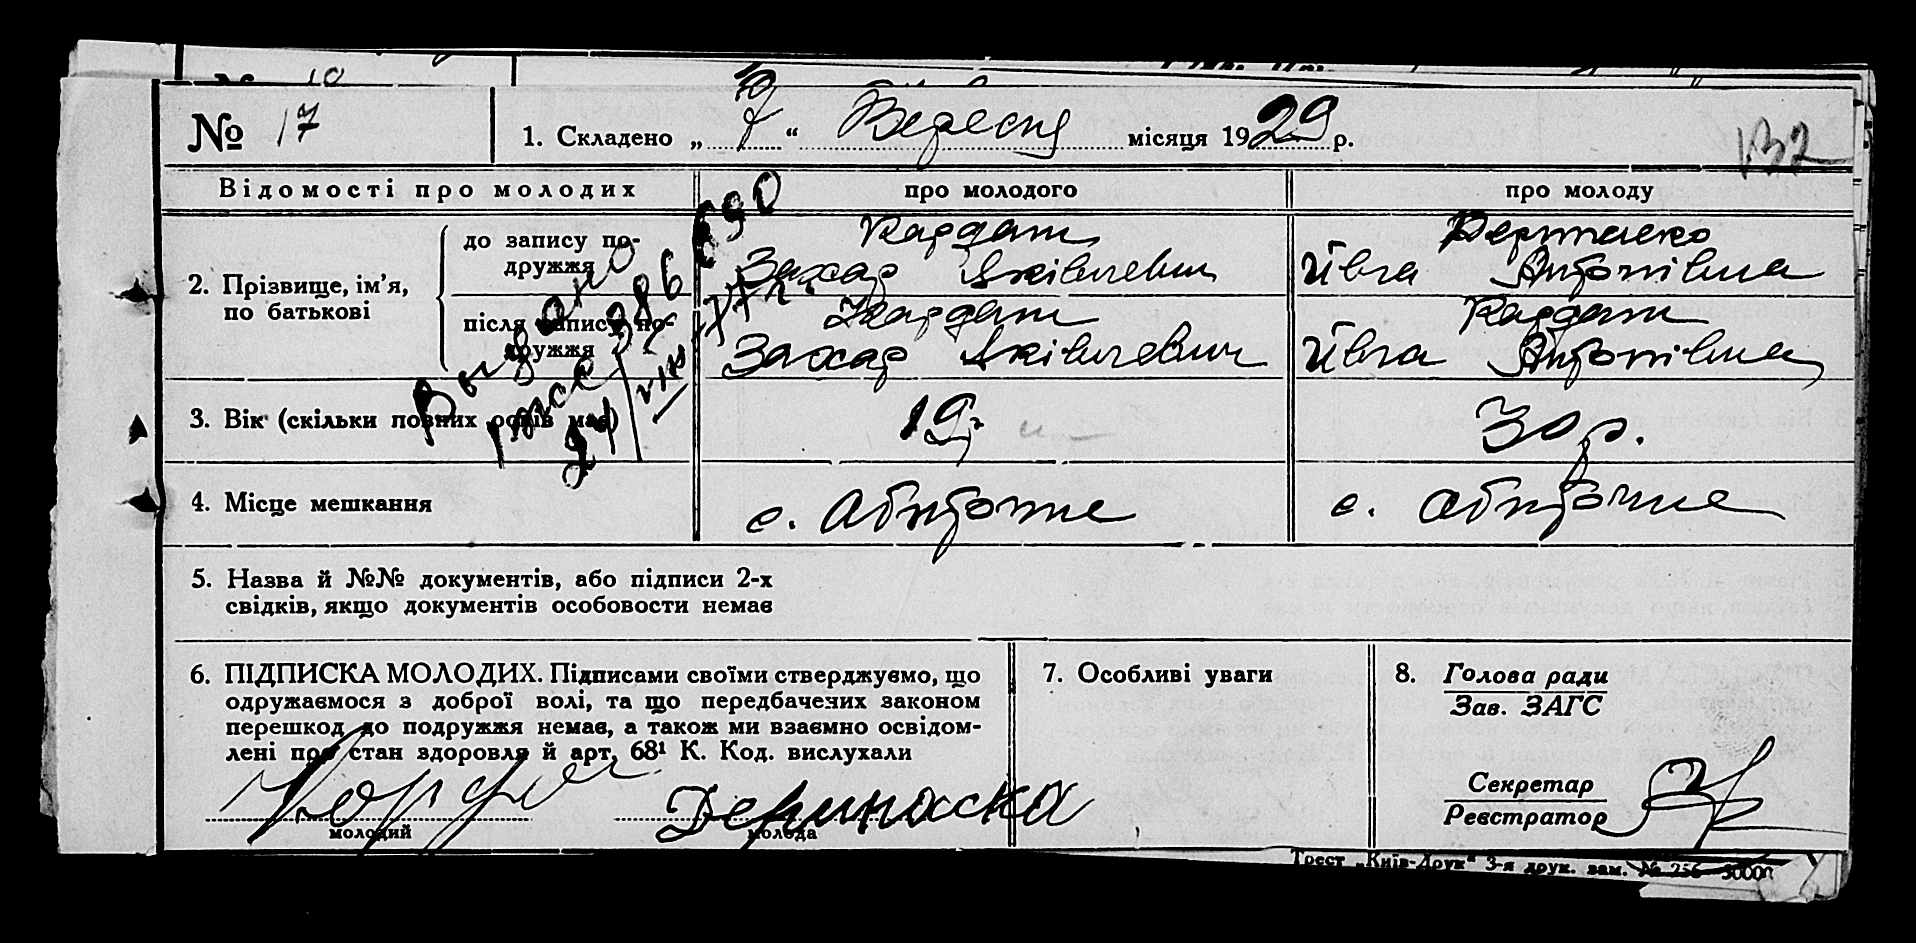 № 17
1. Складено „ 7 “ Вересня місяця 1929 р.
132
Відомості про молодих
про молодого
про молоду
2. Прізвище, ім’я, по батькові
до запису по-
дружжя
Кардаш
Захар Яківлевич
Ївга Антонівна
після запису по-
дружжя
Кардаш
Захар Яківлевич
Кардаш
Ївга Антонівна
3. Вік (скільки повних років має)
19 р
30 р.
4. Місце мешкання
с.
с.
5. Назва й №№ документів, або підписи 2-х
свідків, якщо документів особовости немає
6. ПІДПИСКА МОЛОДИХ. Підписами своїми стверджуємо, що
одружаємося з доброї волі, та що передбачених законом
перешкод до подружжя немає, а також ми взаємно освідом-
лені про стан здоровля й арт. 68¹ К. Код. вислухали
молодий
молода
7. Особливі уваги
8. Голова ради
Зав. ЗАГС
Секретар
Реєстратор
Трест „Київ-Друк“ 3-я друк. зам. № 256—50000